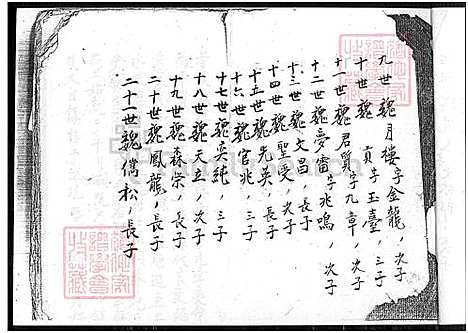 九世魏月樓字金龍，次子
十世魏貢字玉臺，三子
十一世魏君質字九章，次子
十二世魏夢雷字兆鳴，次子
十三世魏文昌，長子
十四世魏聖受，次子
十五世魏光英，長子
十六世魏官兆，三子
十七世魏奕純，三子
十八世魏天立，次子
十九世魏森榮，長子
二十世魏鳳龍，長子
二十一世魏儁松，長子